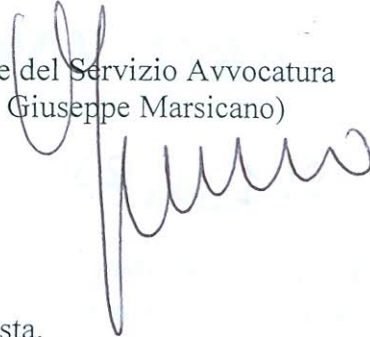 e del Servizio Avvocatura
Giuseppe Marsicano)
sta.